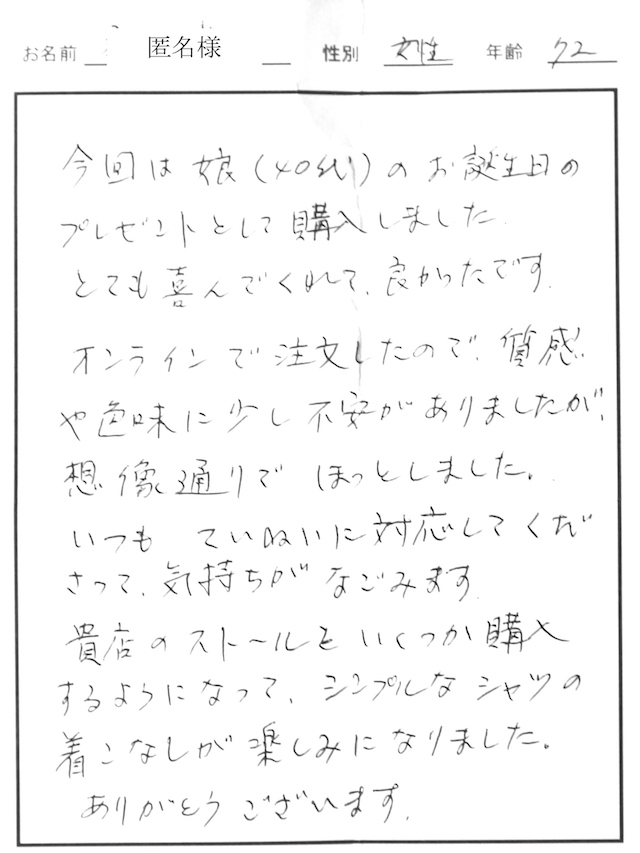 お名前 匿名様 性別 女性 年齢 72
今回は娘(40代)のお誕生日の
プレゼントとして購入しました.
とても喜んでくれて、良かったです.
オンラインで注文したので、質感
や色味に少し不安がありましたが、
想像通りでほっとしました。
いつもていねいに対応してくだ
さって、気持ちがなごみます.
貴店のストールをいくつか購入
するようになって、シンプルなシャツの
着こなしが楽しみになりました。
ありがとうございます.